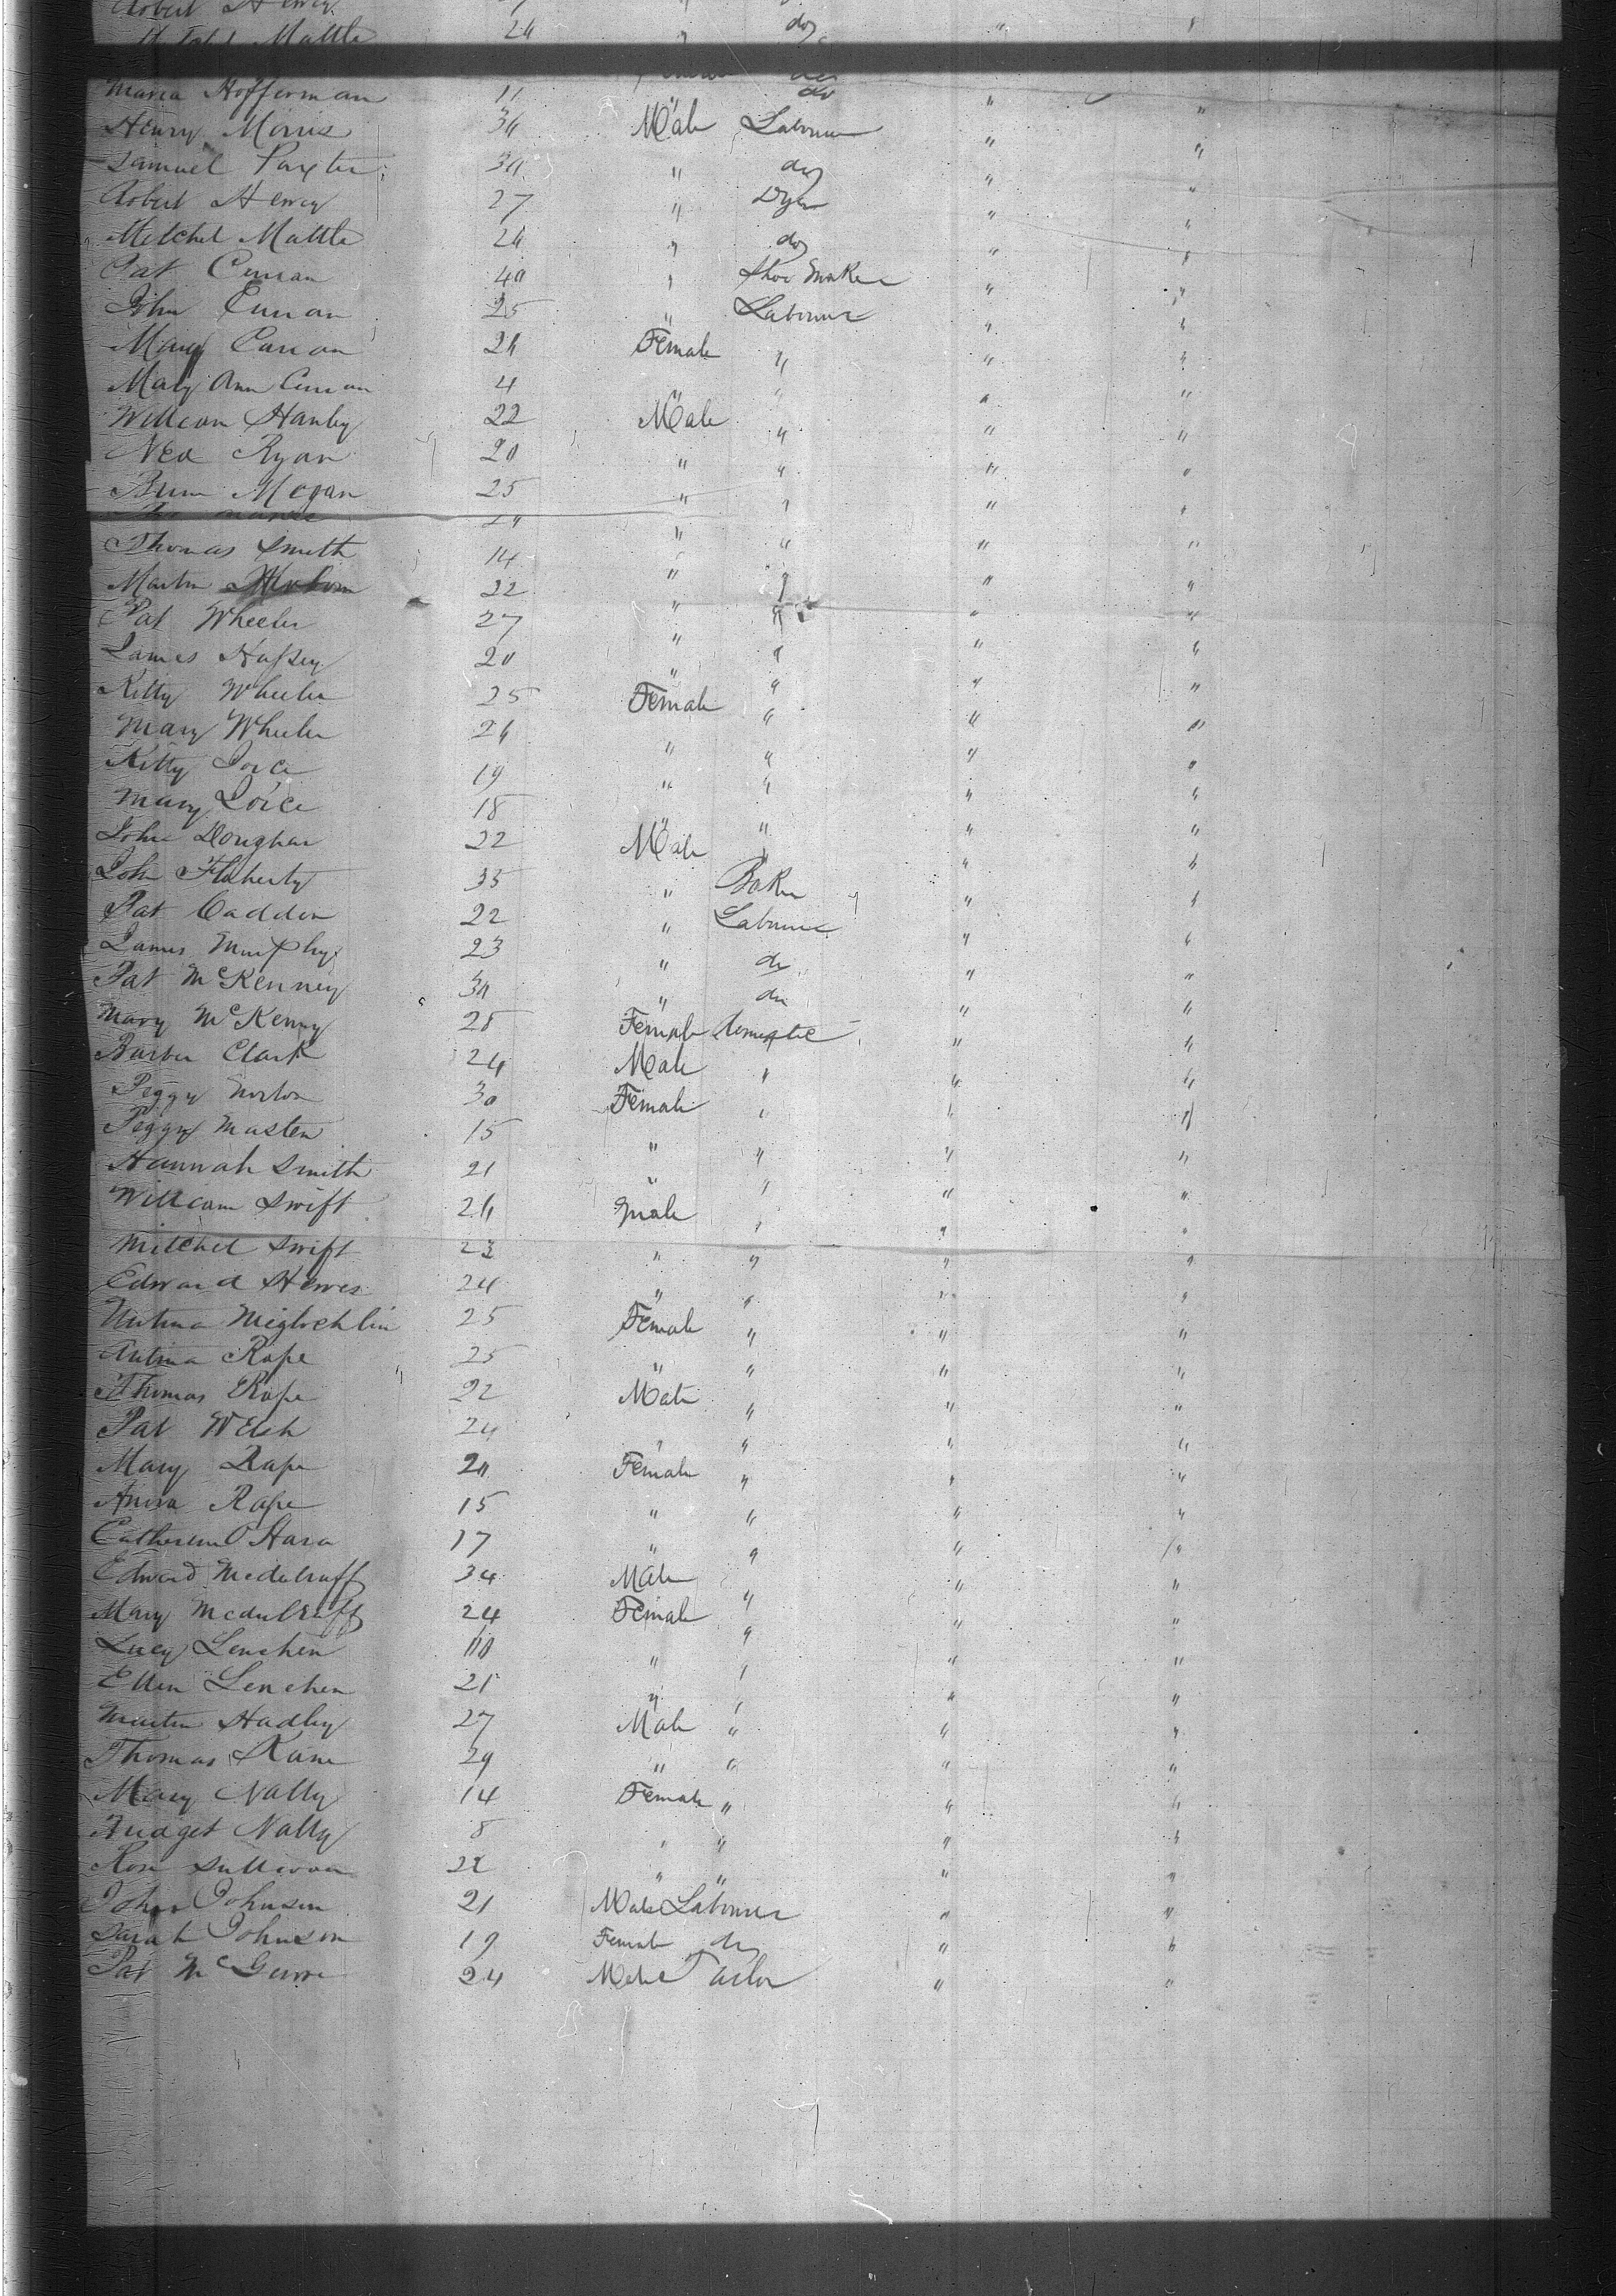 Robert Henry
Mattle 24 " do " "
Maria Hofferman 11 " do " "
Henry Morris 34 Male Labourer " "
Samuel Paxter 30 " do " "
Robert Henry 27 " Dyer " "
Mitchel Mattle 24 " do " "
Pat Curran 40 " Shoe Maker " "
John Curran 25 " Labourer " "
Mary Curran 24 Female " " "
Mary Ann Curran 4 " " " "
William Hanley 22 Male " " "
Ned Ryan 20 " " " "
Megan 25 " " " "
" " " "
Thomas Smith 14 " " " "
Martin 22 " " " "
Pat Wheeler 27 " " " "
James 20 " " " "
Kitty Wheeler 25 Female " " "
Mary Wheeler 24 " " " "
Kitty Joice 19 " " " "
Mary Joice 18 " " " "
John Doughar 22 Male " " "
John Flaherty 35 " Baker " "
Pat Caddon 22 " Labourer " "
James Murphy 23 " do " "
Pat McKenney 30 " do " "
Mary McKenny 28 Female domestic " "
Barber Clark 24 Male " " "
Peggy Norton 30 Female " " "
Peggy Masten 15 " " " "
Hannah Smith 21 " " " "
William Swift 24 Male " " "
Mitchel Swift 23 " " " "
Edward Hewes 24 " " " "
Miglochlin 25 Female " " "
Antina Rape 25 " " " "
Thomas Rape 22 Male " " "
Pat Welch 24 " " " "
Mary Rape 20 Female " " "
Anna Rape 15 " " " "
Catherine O Hara 17 " " " "
Edward Mcdulruff 34 Male " " "
Mary Mcdulruff 24 Female " " "
Lucy Lenehen " " " "
Ellen Lenehen 21 " " " "
Martin Hadley 27 Male " " "
Thomas Kane 29 " " " "
Mary Nally 14 Female " " "
Bridget Nally 8 " " " "
Rose Sullivan 22 " " " "
John Johnson 21 Male Labourer " "
Sarah Johnson 19 Female do " "
Pat McGuire 24 Male Tailor " "